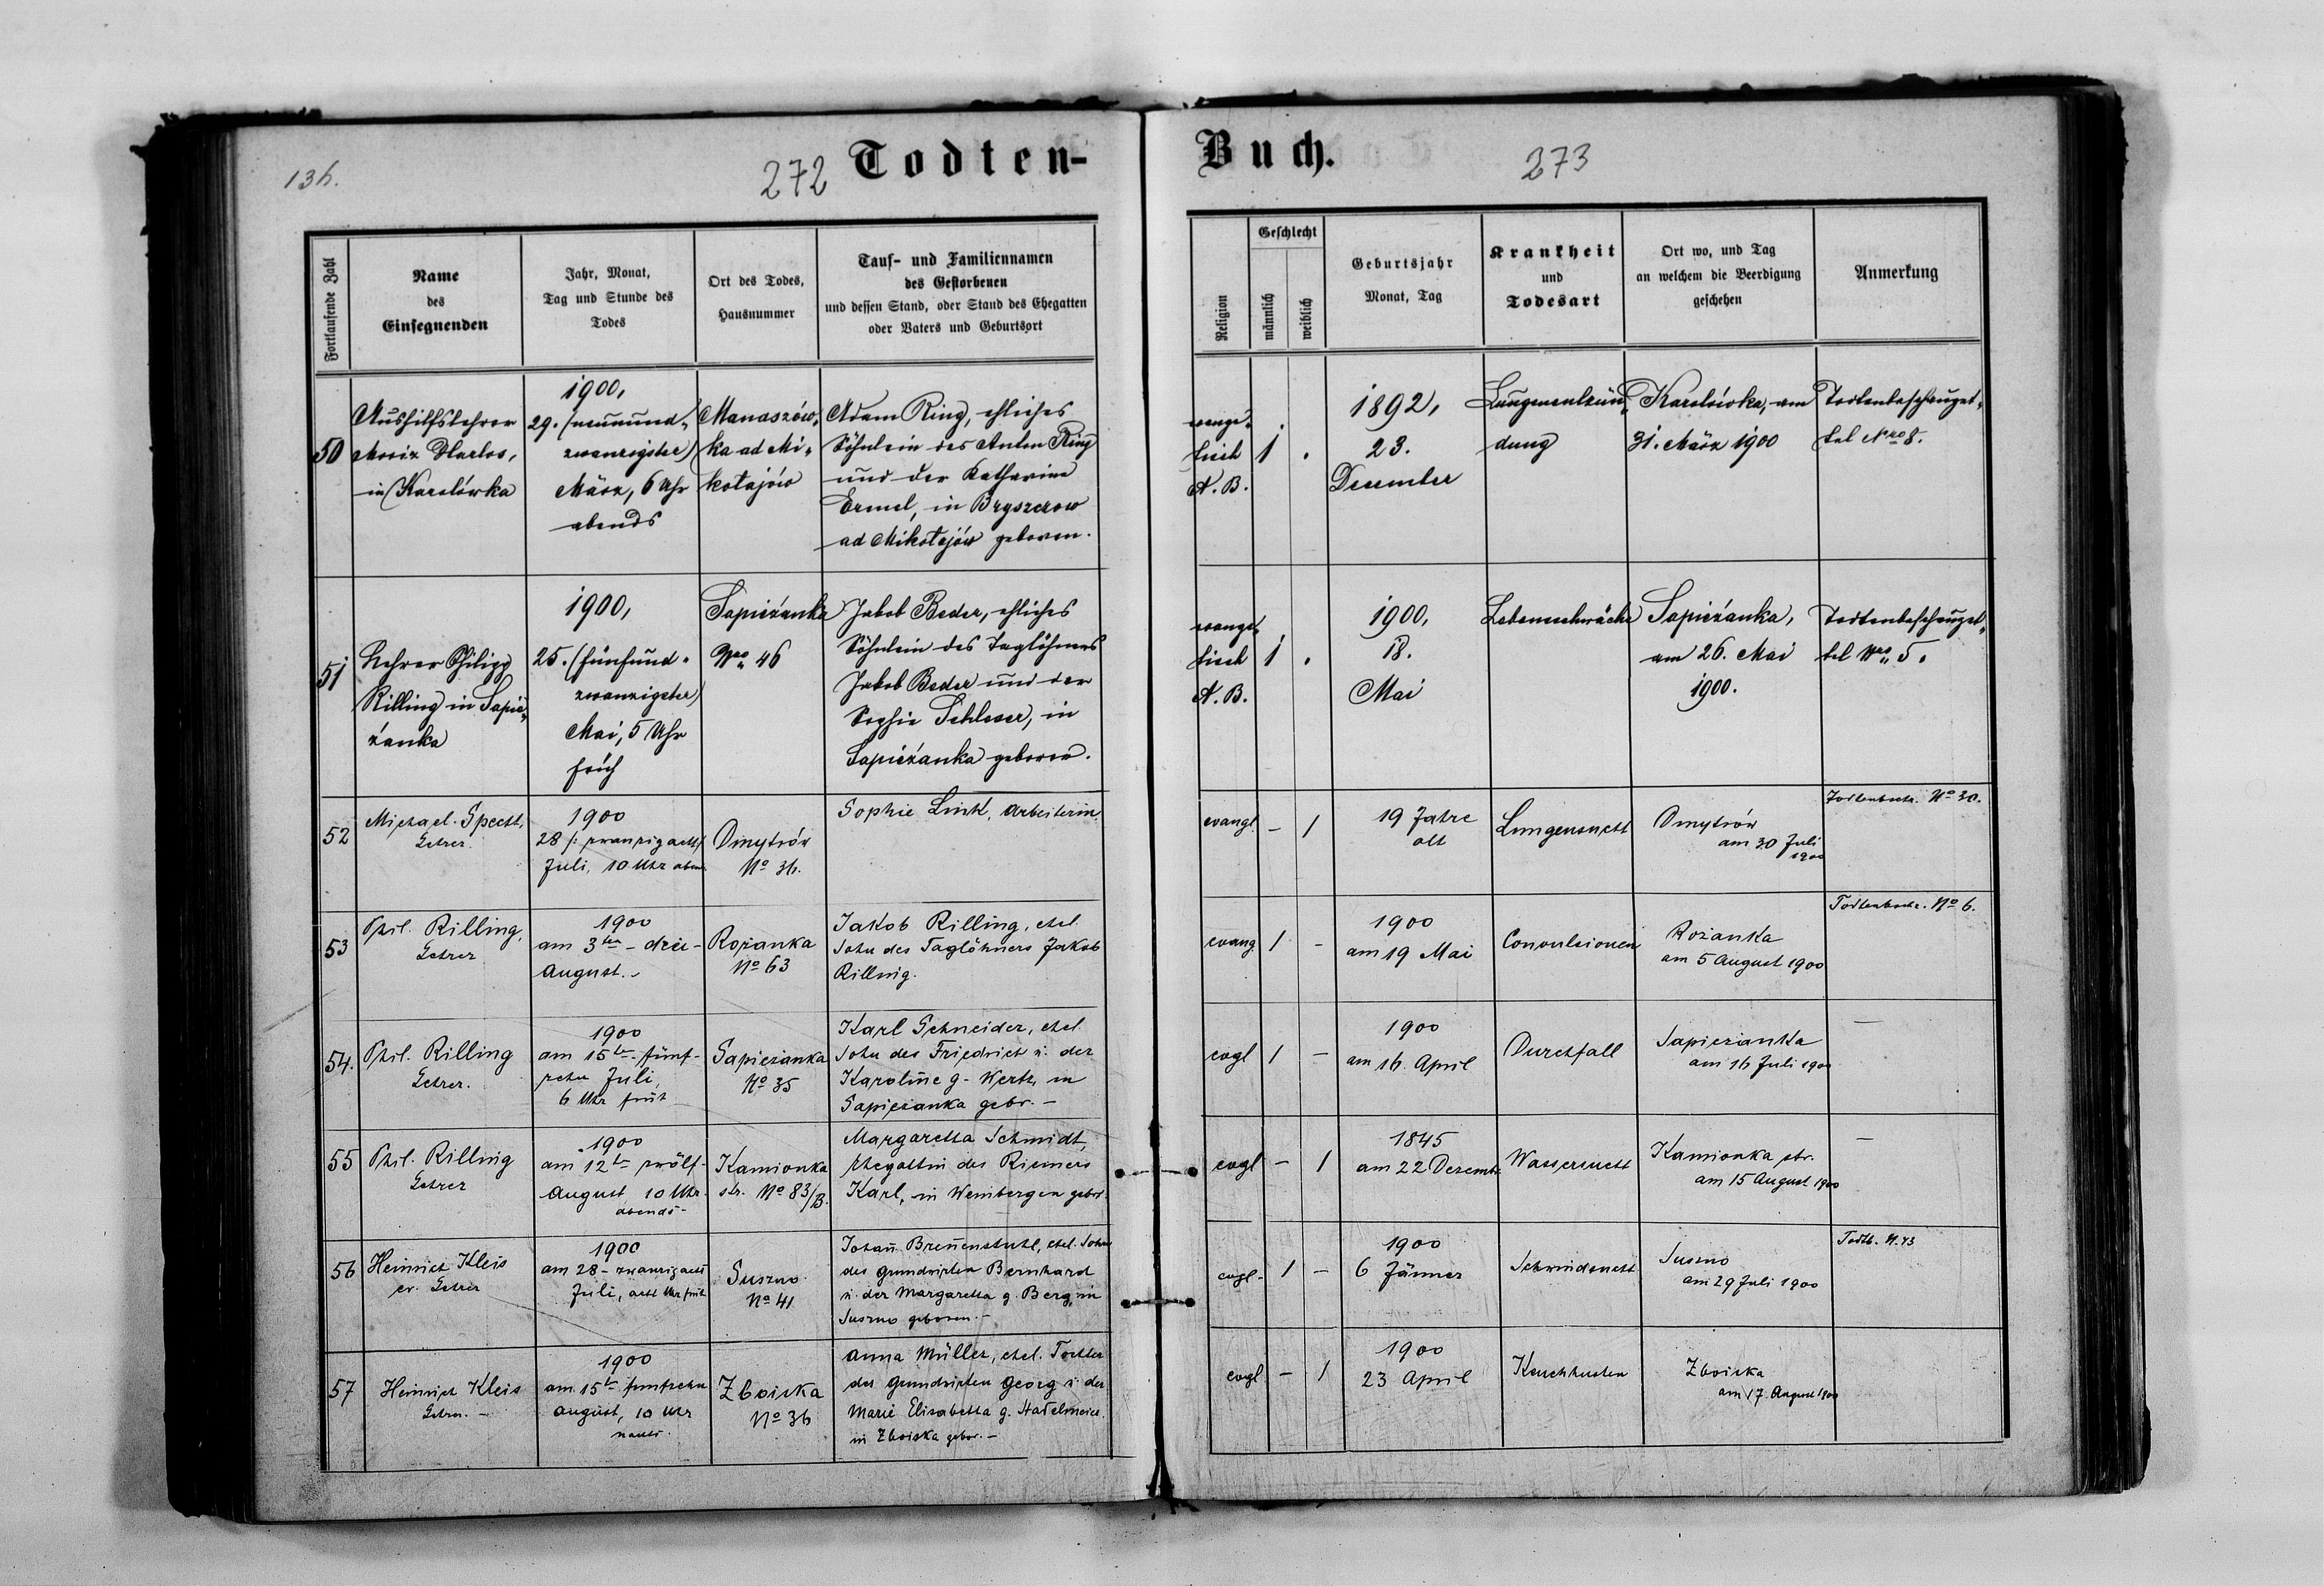 136.
272 Todten-
Buch. 273
Fortlaufende Zahl
Name
des
Einsegnenden
Jahr, Monat,
Tag und Stunde des
Todes
Ort des Todes,
Hausnummer
Tauf- und Familiennamen
des Gestorbenen
und dessen Stand, oder Stand des Ehegatten
oder Vaters und Geburtsort
Religion
Geschlecht
männlich
weiblich
Geburtsjahr
Monat, Tag
Krankheit
und
Todesart
Ort wo, und Tag
an welchem die Beerdigung
geschehen
Anmerkung
50
Aushilfslehrer
Moriz Harlos,
in Karolówka
1900,
29. (neunund-
zwanzigster)
März, 6 Uhr
abends
Manaszów-
ka ad Mi-
kołajów
Adam Ring, ehliches
Söhnlein des Anton Ring
und der Katharina
Ermel, in Bryszerow
ad Mikołajów geboren.
evange-
lisch
A. B.
1 .
1892,
23.
December
Lungenentzün-
dung
Karolówka, am
31. März 1900
Todtenbeschauzet-
tel Nro 8.
51
Lehrer Philipp
Rilling in Sapie-
żanka
1900,
25. (fünfund-
zwanzigster)
Mai, 5 Uhr
früh
Sapieżanka
Nro 46
Jakob Beder, ehliches
Söhnlein des Taglöhners
Jakob Beder und der
Sophie Schlesser, in
Sapieżanka geboren.
evange-
lisch
A. B.
1 .
1900,
18.
Mai
Lebensschwäche
Sapieżanka,
am 26. Mai
1900.
Todtenbeschauzet-
tel Nro 5.
52
Michael Specht,
Lehrer.
1900
28 /: zwanzigacht/
Juli, 10 Uhr abend.
Dmytrów
No 36.
Sophie Link, Arbeiterin
evangl. – 1
19 Jahre
alt
Lungensucht
Dmytrów
am 30 Juli
1900
Todtenbsch. No 30.
53
Phil. Rilling,
Lehrer
1900
am 3ten – drei –
August. –
Rożanka
No 63
Jakob Rilling, ehel.
Sohn des Taglöhners Jakob
Rilling.
evang. 1 –
1900
am 19 Mai
Convulsionen
Rożanka
am 5 August 1900
Todtenbschr. No 6.
54.
Phil. Rilling
Lehrer.
1900
am 15t– fünf-
zehn Juli,
6 Uhr früh
Sapieżanka
No 35
Karl Schneider, ehel.
Sohn des Friedrich u. der
Karoline g. Kertz, in
Sapieżanka gebr. –
evgl 1 –
1900
am 16. April
Durchfall
Sapieżanka
am 16 Juli 1900
–
55
Phil. Rilling
Lehrer
1900
am 12t– zwölf-
August, 10 Uhr
abends –
Kamionka
str. No 83/B.
Margaretha Schmidt,
Ehegattin des Riemers
Karl, in Weinbergen gebor.
evgl – 1
1845
am 22 Dezembr.
Wassersucht
Kamionka str.
am 15 August 1900
–
56
Heinrich Kleis
ev. Lehrer
1900
am 28 – zwanzigacht
Juli, acht Uhr früh
Suszno
No 41
Johañ Breñenstuhl, ehel. Sohn
des Grundwirten Bernhard
u. der Margaretha g. Berg, in
Suszno geboren. –
evgl – 1 –
1900
6 Jänner
Schwindsucht
Suszno
am 29 Juli 1900
Todtb. N. 73
57
Heinrich Kleis
Lehrer. –
1900
am 15t– fünfzehn
August, 10 Uhr
nachts.
Zboiska
No 36
Anna Müller, ehel. Tochter
des Grundwirten Georg u. der
Marie Elisabetha g.
in Zboiska gebor. –
evgl – 1
1900
23 April
Keuchhusten
Zboiska
am 17. August 1900